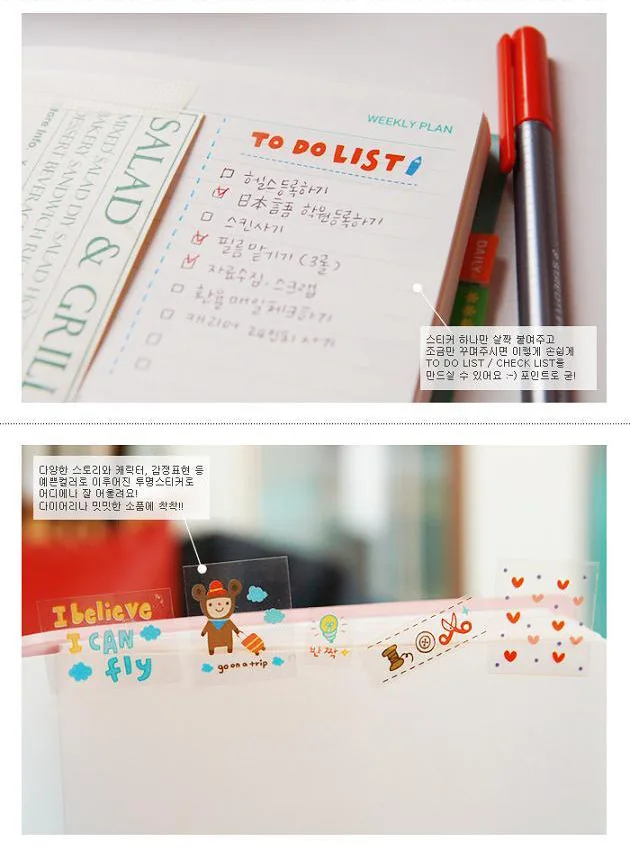 WEEKLY PLAN
TO DO LIST
헬스등록하기
日本語 학원등록하기
스킨사기
필름맡기기 (3롤)
자료수집·스크랩
환율매일체크하기
캐리어 24인치 사기
SALAD & GRILL
MIXED SALAD DIY SALAD
BAKERY SANDWICH
DAILY
스티커 하나만 살짝 붙여주고
조금만 꾸며주시면 이렇게 손쉽게
TO DO LIST / CHECK LIST를
만드실 수 있어요 :-) 포인트로 굳!
다양한 스토리와 캐릭터, 감정표현 등
예쁜컬러로 이루어진 투명스티커로
어디에나 잘 어울려요!
다이어리나 밋밋한 소품에 착착!!
I believe
I CAN
fly
go on a trip
반짝